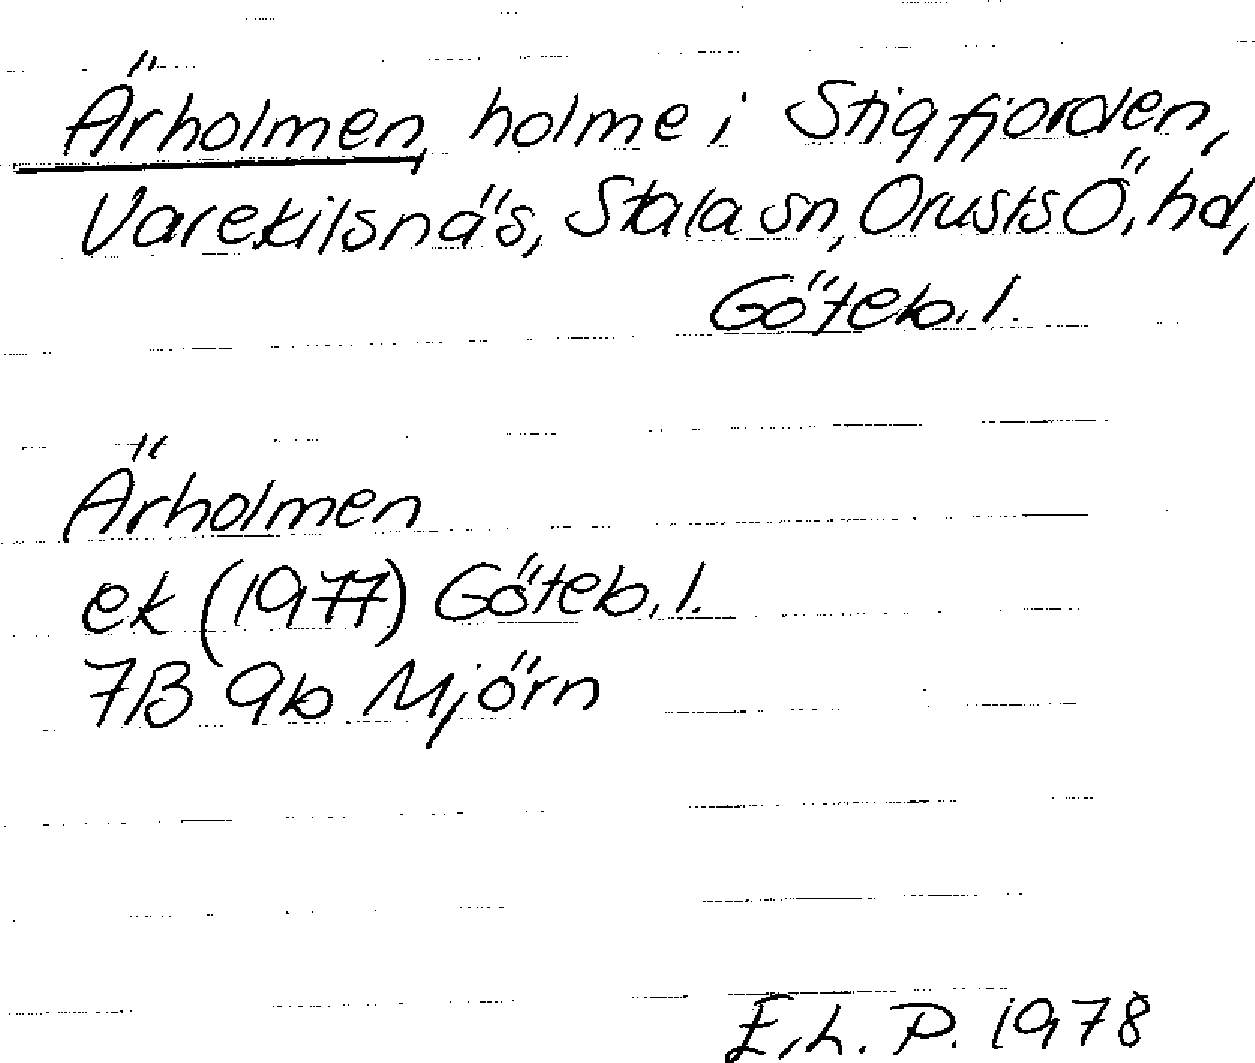 Ärholmen, holme i Stigfjorden,
Varekilsnäs, Stala sn, Orusts Ö. hd,
Göteb. l.
Ärholmen
ek (1977) Göteb. l.
7B 9b Mjörn
E. L. P. 1978